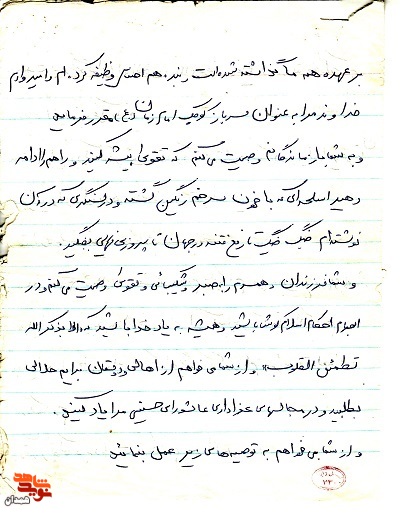 بر عهده همه ما گذاشته شده است بنده هم احساس وظیفه کرده ام و امیدوارم
خداوند مرا به عنوان سرباز کوچک امام زمان (عج) مقرر فرماید
و به شما بازماندگانم وصیت می کنم که تقوی پیشه کنید و راهم را ادامه
دهید اسلحه ای که با خون سرخم رنگین گشته و در سنگری که در آن
نوشته ام جنگ جنگ تا رفع فتنه در جهان تا پیروزی نهایی بجنگید.
و شما فرزندان و همسرم را به صبر و شکیبائی و تقوی وصیت می کنم و در
احکام اسلام کوشا باشید و همیشه به یاد خدا باشید که الا بذکر الله
تطمئن القلوب و از شما می خواهم از اهالی و دوستان برایم حلالی
بطلبید و در مجالسهای عزاداری عاشورای حسینی مرا یاد کنید.
و از شما می خواهم به توصیه های زیر عمل نمائید
۲۳
نوید شاهد
همدان